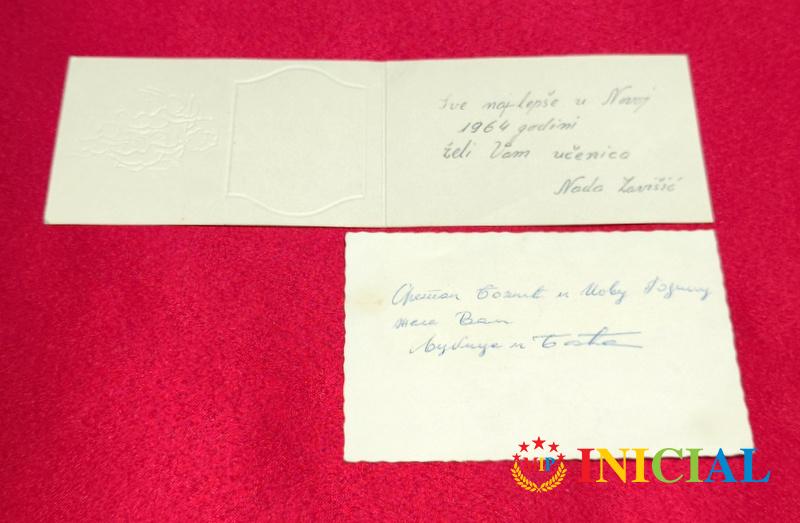 Sve najlepše u Novoj
1964 godini
želi Vam učenica
Nada Zavišić
Срећан Божић и Нову Годину
желе Вам
Љубица и
VIP INICIAL